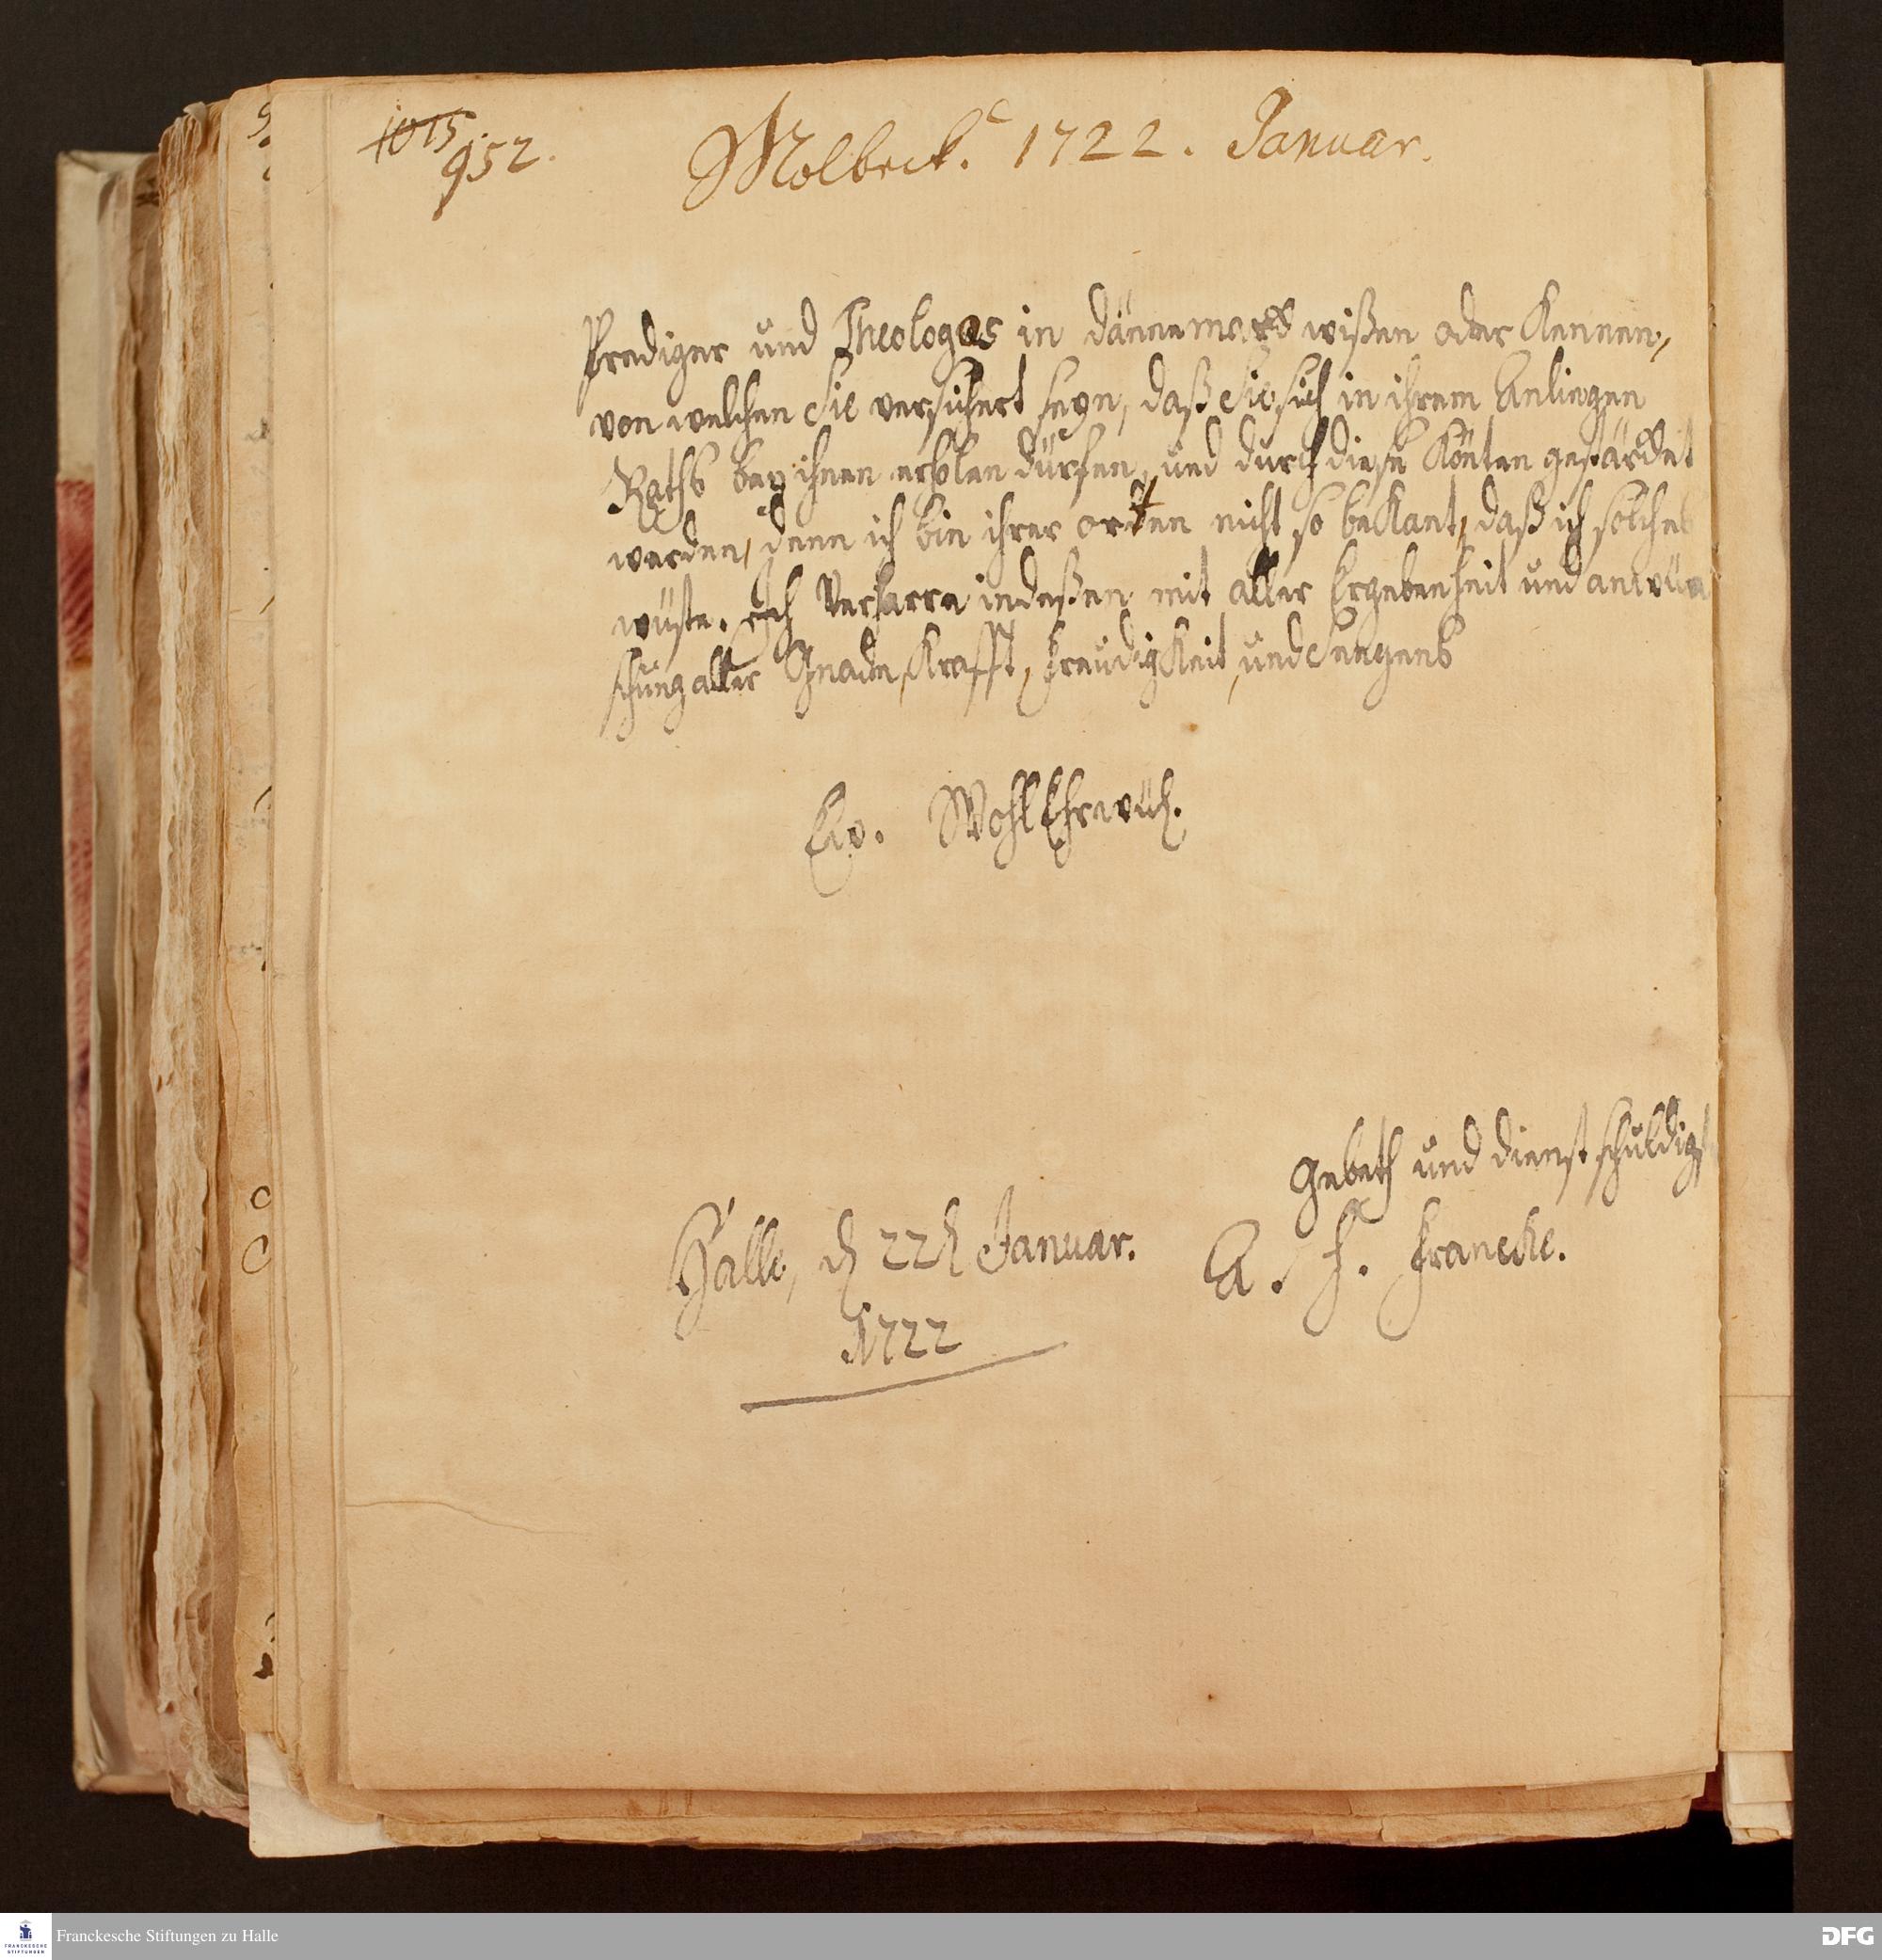 1015
952.
Molbeck. 1722. Januar.
Prediger und Theologos in dännemarck wißen oder kennen,
von welchen Sie versichert seyn, daß Sie sich in ihrem Anliegen
Raths bey ihnen erholen dürfen, und durch diese könten gestärcket
werden, denn ich bin ihrer orten nicht so bekant, daß ich solches
wüste. Ich verharre indeßen mit aller Ergebenheit und anwün
schung aller Gnade, Krafft, freudigkeit, und Seegens
Ew. WohlEhrwürd.
gebeth und dienst schuldigst
Halle, d 22 Januar. A. H. Francke.
1722
Franckesche Stiftungen zu Halle
FRANCKESCHE
STIFTUNGEN
DFG